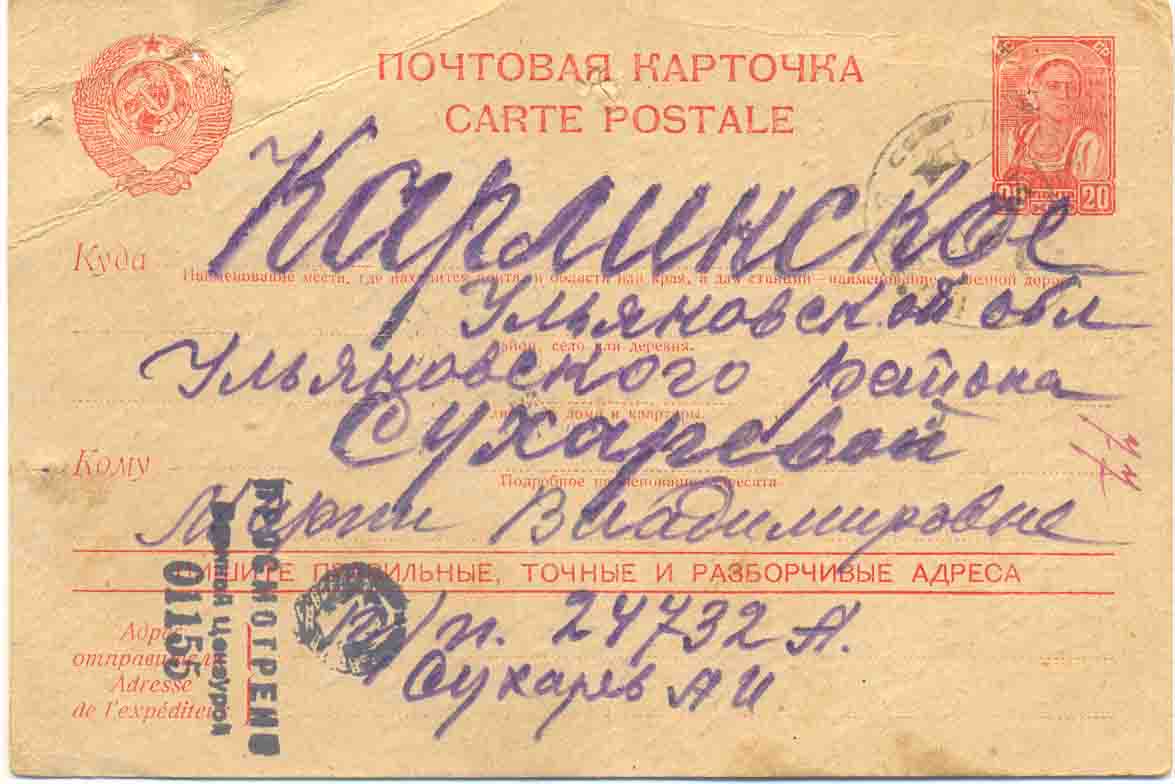 ПОЧТОВАЯ КАРТОЧКА
CARTE POSTALE
СС СР
20 20
Куда Карлинское
Наименование места, где находится почта и области или края, а для станций—наименование дороги
Ульяновской обл
село или деревня.
Ульяновского района
дома и квартиры.
Кому Сухаревой
Подробное наименование адресата
Марии Владимировне
ПИШИТЕ ПРАВИЛЬНЫЕ, ТОЧНЫЕ И РАЗБОРЧИВЫЕ АДРЕСА
Адрес отправителя
Adresse de l'expéditeur
п/п. 24732 А.
Сухарев А И
ПРОСМОТРЕНО
Военной Цензурой
01155